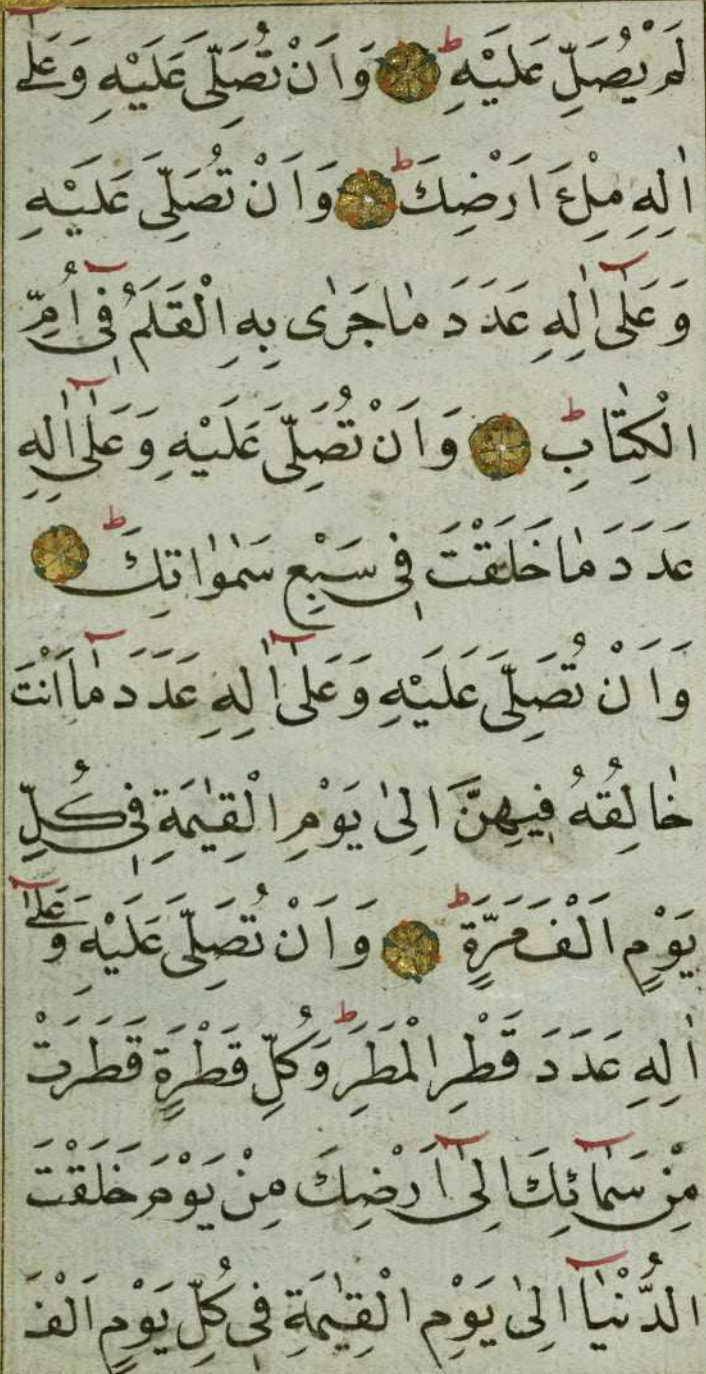 لَمْ يُصَلِّ عَلَيْهِ ط وَاَنْ تُصَلِّىَ عَلَيْهِ وَعَلٰٓى
اٰلِهِ مِلْءَ اَرْضِكَ ط وَاَنْ تُصَلِّىَ عَلَيْهِ
وَعَلٰٓى اٰلِهِ عَدَدَ مٰا جَرٰى بِهِ الْقَلَمُ فِىٓ اُمِّ
الْكِتٰابِ ط وَاَنْ تُصَلِّىَ عَلَيْهِ وَعَلٰٓى اٰلِهِ
عَدَدَ مٰا خَلَقْتَ فِى سَبْعِ سَمٰوٰاتِكَ ط
وَاَنْ تُصَلِّىَ عَلَيْهِ وَعَلٰٓى اٰلِهِ عَدَدَ مٰٓا اَنْتَ
خٰالِقُهُ فِيهِنَّ اِلىٰ يَوْمِ الْقِيٰمَةِ فِى كُلِّ
يَوْمٍ اَلْفَ مَرَّةٍ ط وَاَنْ تُصَلِّىَ عَلَيْهِ وَعَلٰٓى
اٰلِهِ عَدَدَ قَطْرِ الْمَطَرِ ط وَكُلِّ قَطْرَةٍ قَطَرَتْ
مِنْ سَمٰٓائِكَ اِلىٰٓ اَرْضِكَ مِنْ يَوْمَ خَلَقْتَ
الدُّنْيٰٓا اِلىٰ يَوْمِ الْقِيٰمَةِ فِى كُلِّ يَوْمٍ اَلْفَ